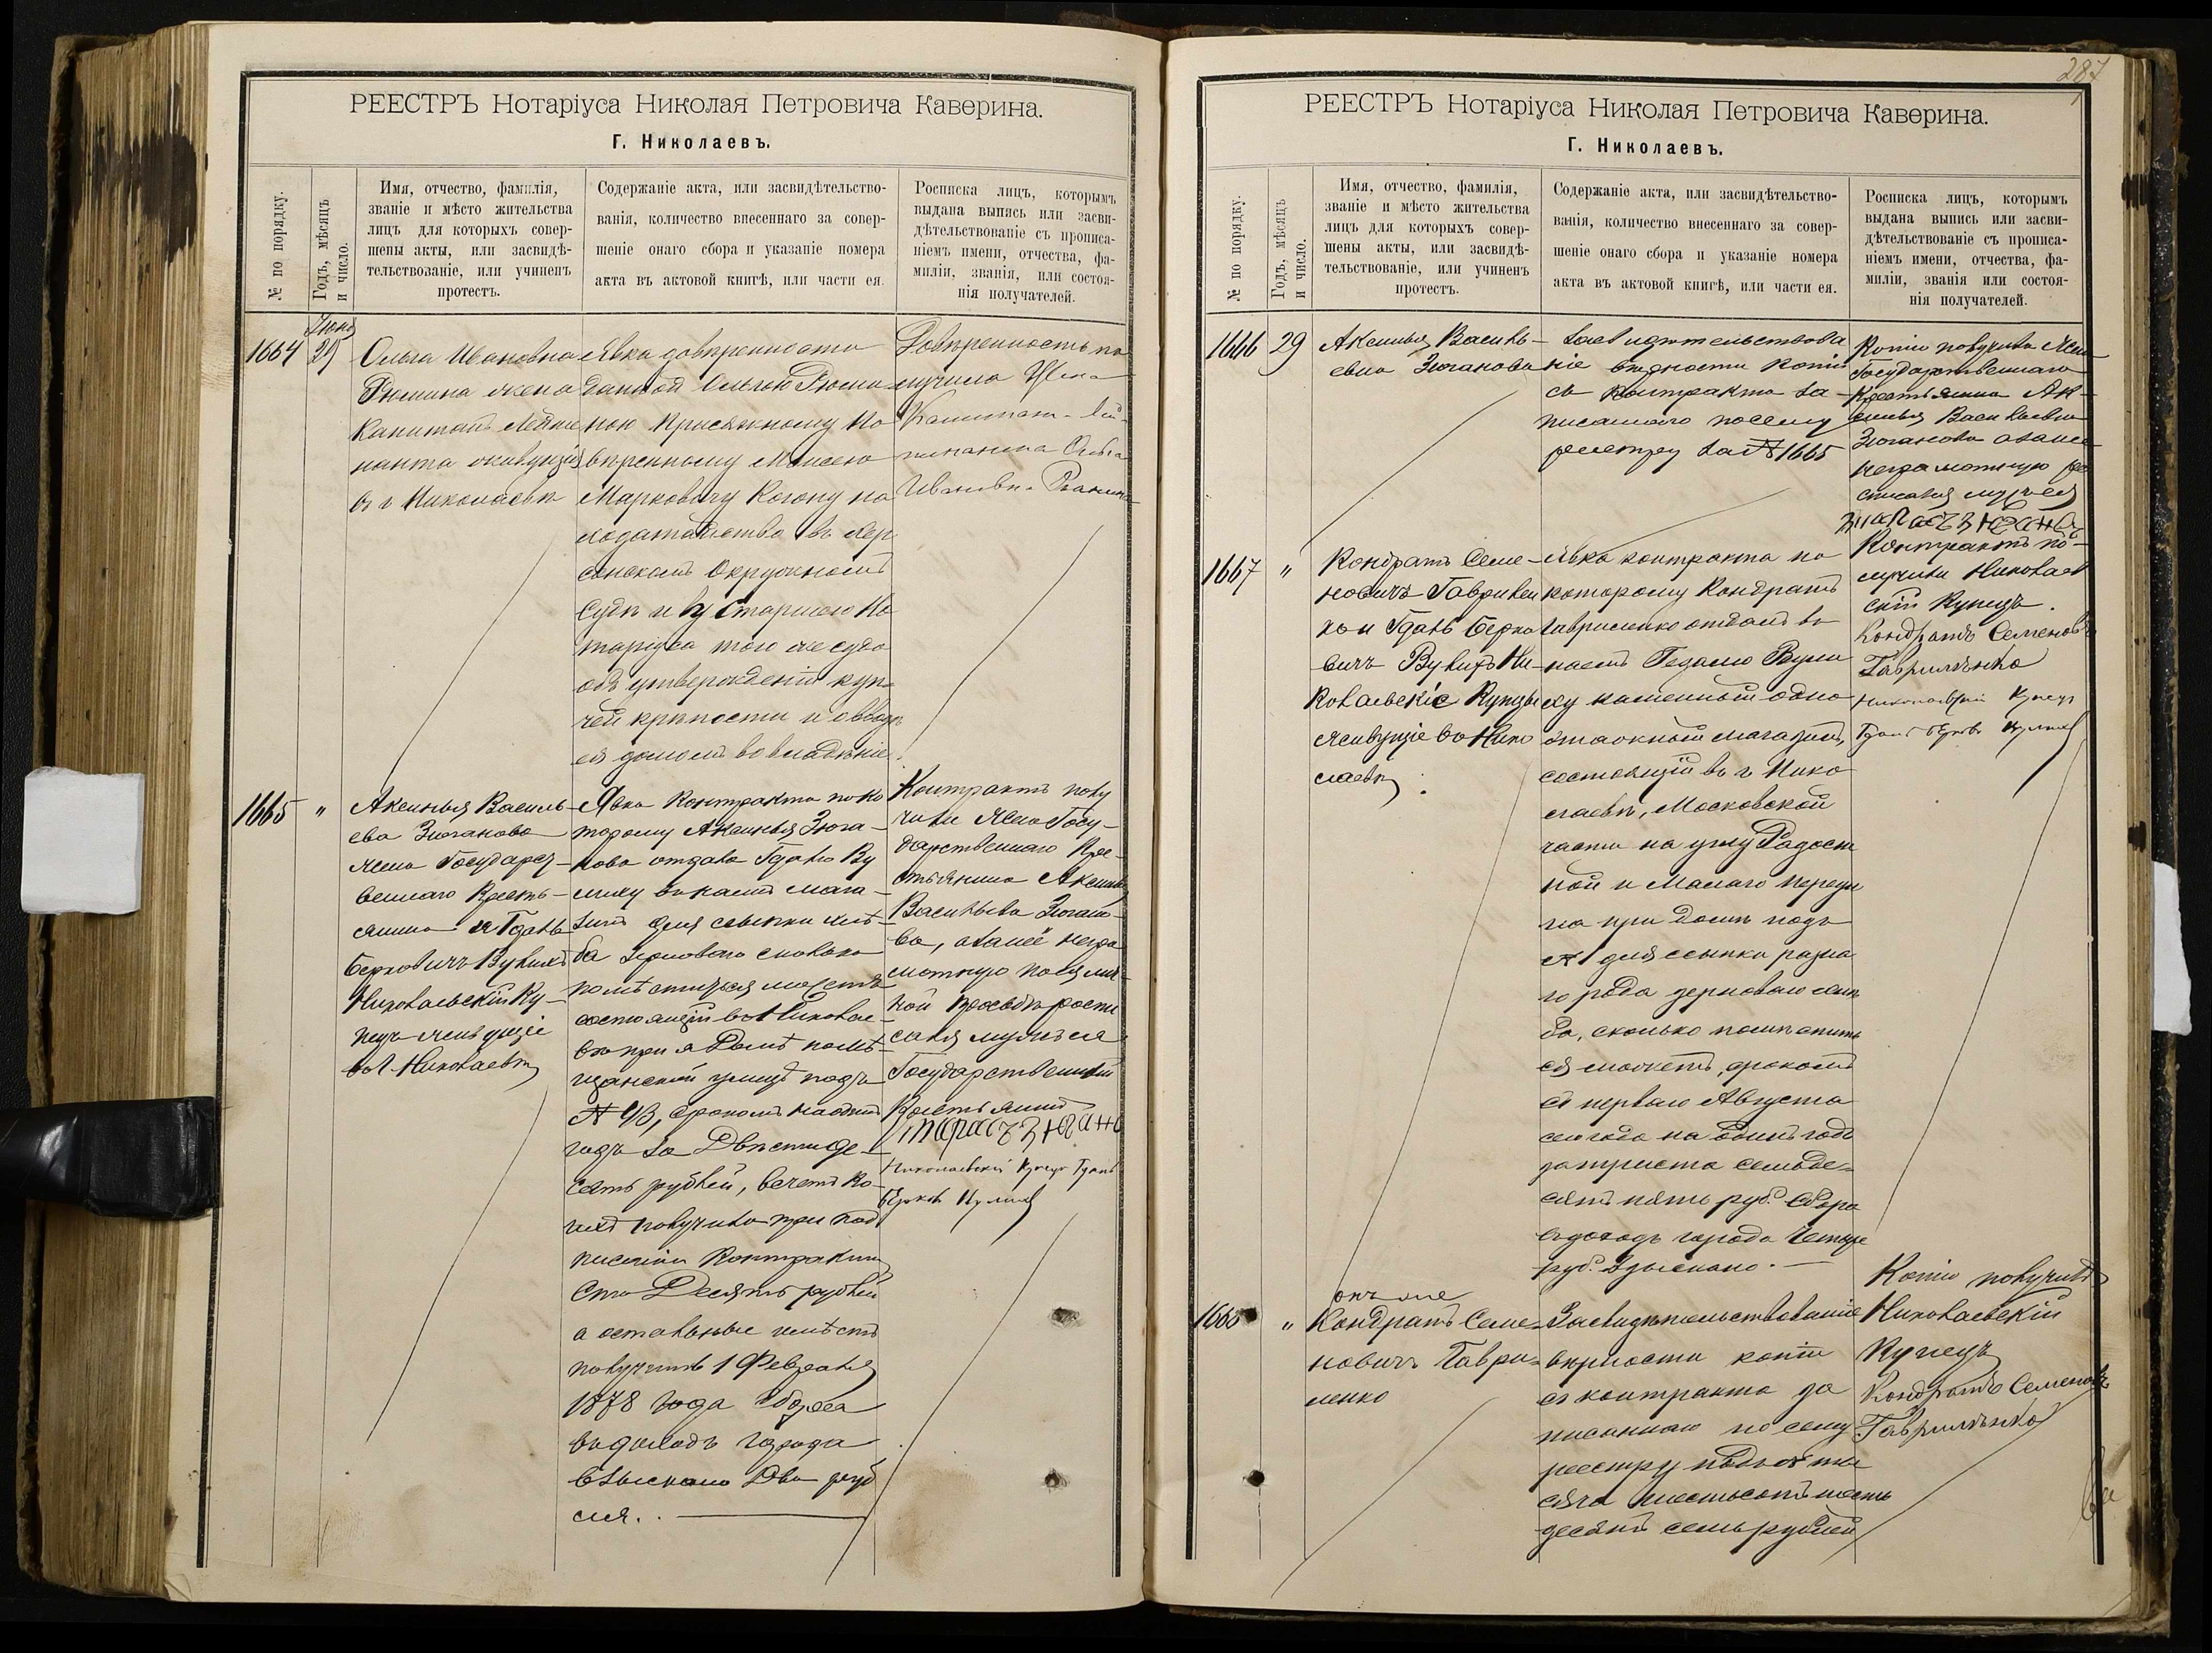 РЕЕСТРЪ Нотаріуса Николая Петровича Каверина.
Г. Николаевъ.
№ по порядку.
Годъ, мѣсяцъ
и число.
Имя, отчество, фамилія,
званіе и мѣсто жительства
лицъ для которыхъ совер-
шены акты, или засвидѣ-
тельствованіе, или учиненъ
протестъ.
Содержаніе акта, или засвидѣтельство-
ванія, количество внесеннаго за совер-
шеніе онаго сбора и указаніе номера
акта въ актовой книгѣ, или части ея.
Росписка лицъ, которымъ
выдана выпись или засви-
дѣтельствованіе съ прописа-
ніемъ имени, отчества, фа-
миліи, званія, или состоя-
нія получателей.
1664
Іюня
29
Ольга Ивановна
Рюмина жена
Капитанъ Лейте
нанта
въ г Николаевѣ
Явка довѣренности
данной Ольгою Рюми
ною Присяжному По
вѣренному Моисею
Марковичу Когону на
ходатайство въ Хер
сонскомъ Окружномъ
Судѣ и у Старшаго Но
таріуса того же суда
объ утвержденіи куп-
чей крѣпости и о вводѣ
ея домомъ во владѣніе.
Довѣренность по
лучила Жена
Капитанъ-Лей-
тенанта Ольга
Ивановна Рюмина
1665
"
Аксинья Василь-
ева Зюганова
жена Государст-
веннаго Кресть-
янина и Гдаль
Берковичъ Вулихъ
Николаевскій Ку-
пецъ живущіе
въ г. Николаевѣ
Явка Контракта по ко
торому Аксинья Зюга-
нова отдала Гдалю Ву
лиху въ наемъ мага-
зинъ для ссыпки хлѣ-
ба зерноваго сколько
помѣститься можетъ
состоящій въ Николае-
вѣ при я Домѣ по Мѣ-
щанской улицѣ подъ
N 43, срокомъ на одинъ
годъ за Двѣсти де-
сять рублей, в счетъ ко-
ихъ получила при под
писаніи Контракта
Сто Десять рублей
а остальные имѣетъ
получить 1 Февраля
1878 года Сбора
въ доходъ города
взыскано Два руб
ля.
Контрактъ полу
чили Жена Госу-
дарственнаго Кре-
стьянина Аксинья
Васильева Зюгано-
ва, а за неё негра
мотную по ея лич-
ной просьбѣ роспи
сался мужъ ея
Государственный
Крестьянинъ
Николаевскій Купецъ Гдаль
Берков Вулихъ
287
РЕЕСТРЪ Нотаріуса Николая Петровича Каверина.
Г. Николаевъ.
№ по порядку.
Годъ, мѣсяцъ
и число.
Имя, отчество, фамилія,
званіе и мѣсто жительства
лицъ для которыхъ совер-
шены акты, или засвидѣ-
тельствованіе, или учиненъ
протестъ.
Содержаніе акта, или засвидѣтельство-
ванія, количество внесеннаго за совер-
шеніе онаго сбора и указаніе номера
акта въ актовой книгѣ, или части ея.
Росписка лицъ, которымъ
выдана выпись или засви-
дѣтельствованіе съ прописа-
ніемъ имени, отчества, фа-
миліи, званія или состоя-
нія получателей.
1666
29
Аксинья Василь-
евна Зюганова
Засвидѣтельствова
ніе вѣрности копіи
съ контракта за-
писаннаго по сему
реестру за N 1665
Копію получила Жена
Государственнаго
Крестьянина Ак-
синья Васильевна
Зюганова а за нее
неграмотную ро
списался мужъ ея
1667
"
Кондратъ Семе-
новичъ Гаврилен
ко и Гдаль Берко
вичъ Вулихъ Ни-
колаевскіе Купцы
живущіе въ Нико
лаевѣ
Явка контракта по
которому Кондратъ
Гавриленко отдалъ въ
наемъ Гедалю Вули
ху каменный одно
этажный магазинъ,
состоящій въ г Нико
лаевѣ, Московской
части на углу Радост
ной и Малаго переул
ка при домѣ подъ
N 1 для ссыпки разна
го рода зерноваго хлѣ
ба, сколько помѣстить
ся можетъ, срокомъ
съ перваго Августа
сего года на одинъ годъ
за триста семьде-
сятъ пять руб. Сбора
въ доходъ города Четыре
руб. взыскано.
Контрактъ по-
лучили Николаев
скій Купецъ.
Кондратъ Семеновъ
Гавриленко
Николаевскій Купецъ
Гдаль Берков Вулихъ
1668
"
онъ же
Кондратъ Семе-
новичъ Гаври-
ленко
Засвидѣтельствованіе
вѣрности копіи
съ контракта за
писаннаго по сему
реестру подъ N ты
сяча шестьсотъ шесть
десятъ семь рублей
Копію получилъ
Николаевскій
Купецъ
Кондратъ Семеновъ
Гавриленко